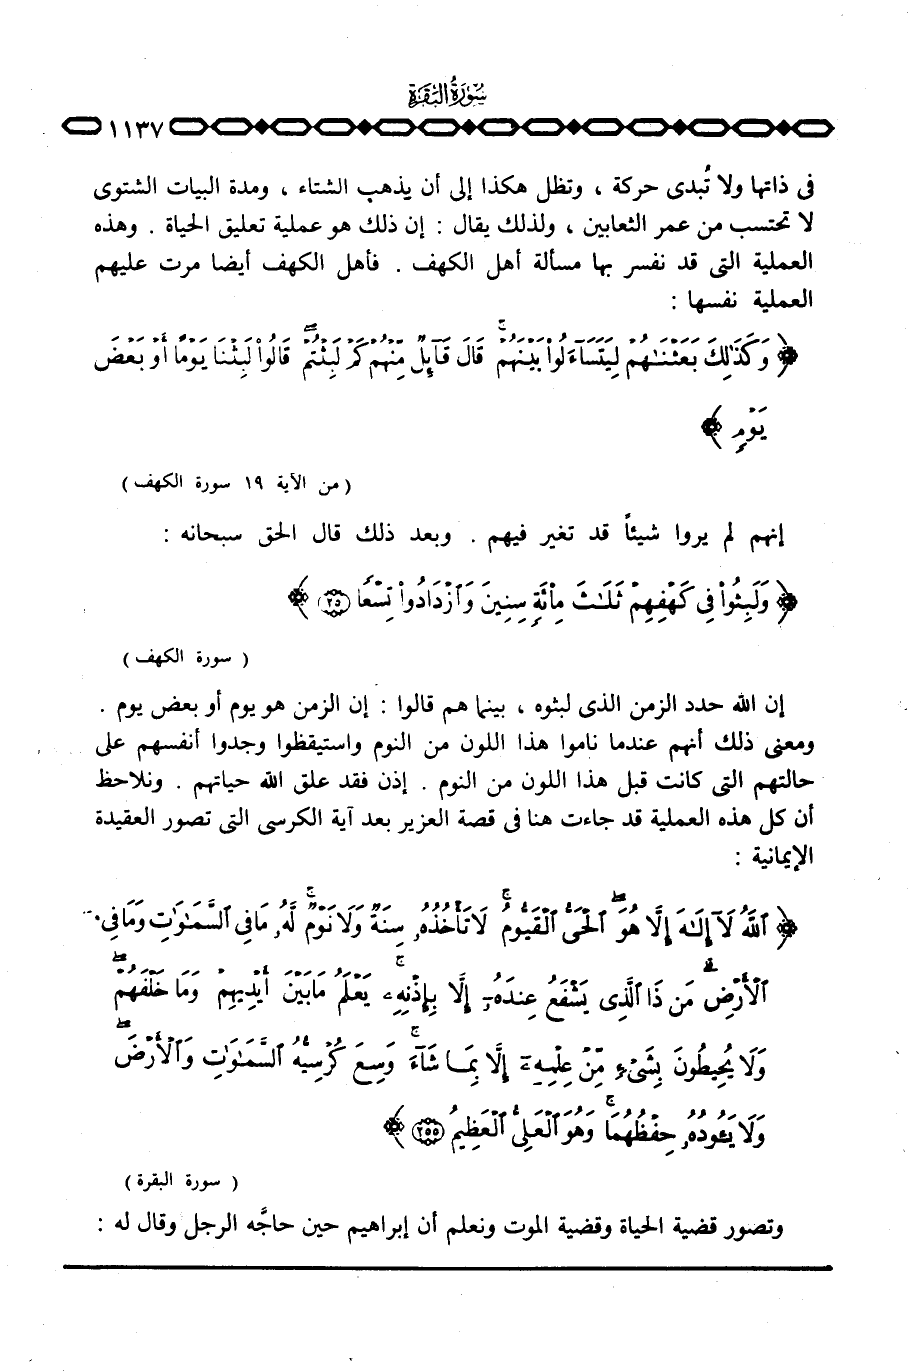 سُورَةُ البَقَرَة
١١٣٧
فى ذاتها ولا تُبدى حركة ، وتظل هكذا إلى أن يذهب الشتاء ، ومدة البيات الشتوى
لا تحتسب من عمر الثعابين ، ولذلك يقال : إن ذلك هو عملية تعليق الحياة . وهذه
العملية التى قد نفسر بها مسألة أهل الكهف . فأهل الكهف أيضا مرت عليهم
العملية نفسها :
﴿ وَكَذَٰلِكَ بَعَثْنَـٰهُمْ لِيَتَسَآءَلُوا۟ بَيْنَهُمْ ۚ قَالَ قَآئِلٌ مِّنْهُمْ كَمْ لَبِثْتُمْ ۖ قَالُوا۟ لَبِثْنَا يَوْمًا أَوْ بَعْضَ
يَوْمٍ ﴾
( من الآية ١٩ سورة الكهف )
إنهم لم يروا شيئاً قد تغير فيهم . وبعد ذلك قال الحق سبحانه :
﴿ وَلَبِثُوا۟ فِى كَهْفِهِمْ ثَلَـٰثَ مِا۟ئَةٍ سِنِينَ وَٱزْدَادُوا۟ تِسْعًا ٢٥ ﴾
( سورة الكهف )
إن الله حدد الزمن الذى لبثوه ، بينما هم قالوا : إن الزمن هو يوم أو بعض يوم .
ومعنى ذلك أنهم عندما ناموا هذا اللون من النوم واستيقظوا وجدوا أنفسهم على
حالتهم التى كانت قبل هذا اللون من النوم . إذن فقد علق الله حياتهم . ونلاحظ
أن كل هذه العملية قد جاءت هنا فى قصة العزير بعد آية الكرسى التى تصور العقيدة
الإيمانية :
﴿ ٱللَّهُ لَآ إِلَـٰهَ إِلَّا هُوَ ٱلْحَىُّ ٱلْقَيُّومُ ۚ لَا تَأْخُذُهُۥ سِنَةٌ وَلَا نَوْمٌ ۚ لَّهُۥ مَا فِى ٱلسَّمَـٰوَٰتِ وَمَا فِى
ٱلْأَرْضِ ۗ مَن ذَا ٱلَّذِى يَشْفَعُ عِندَهُۥٓ إِلَّا بِإِذْنِهِۦ ۚ يَعْلَمُ مَا بَيْنَ أَيْدِيهِمْ وَمَا خَلْفَهُمْ ۖ
وَلَا يُحِيطُونَ بِشَىْءٍ مِّنْ عِلْمِهِۦٓ إِلَّا بِمَا شَآءَ ۚ وَسِعَ كُرْسِيُّهُ ٱلسَّمَـٰوَٰتِ وَٱلْأَرْضَ ۖ
وَلَا يَـُٔودُهُۥ حِفْظُهُمَا ۚ وَهُوَ ٱلْعَلِىُّ ٱلْعَظِيمُ ٢٥٥ ﴾
( سورة البقرة )
وتصور قضية الحياة وقضية الموت ونعلم أن إبراهيم حين حاجَّه الرجل وقال له :